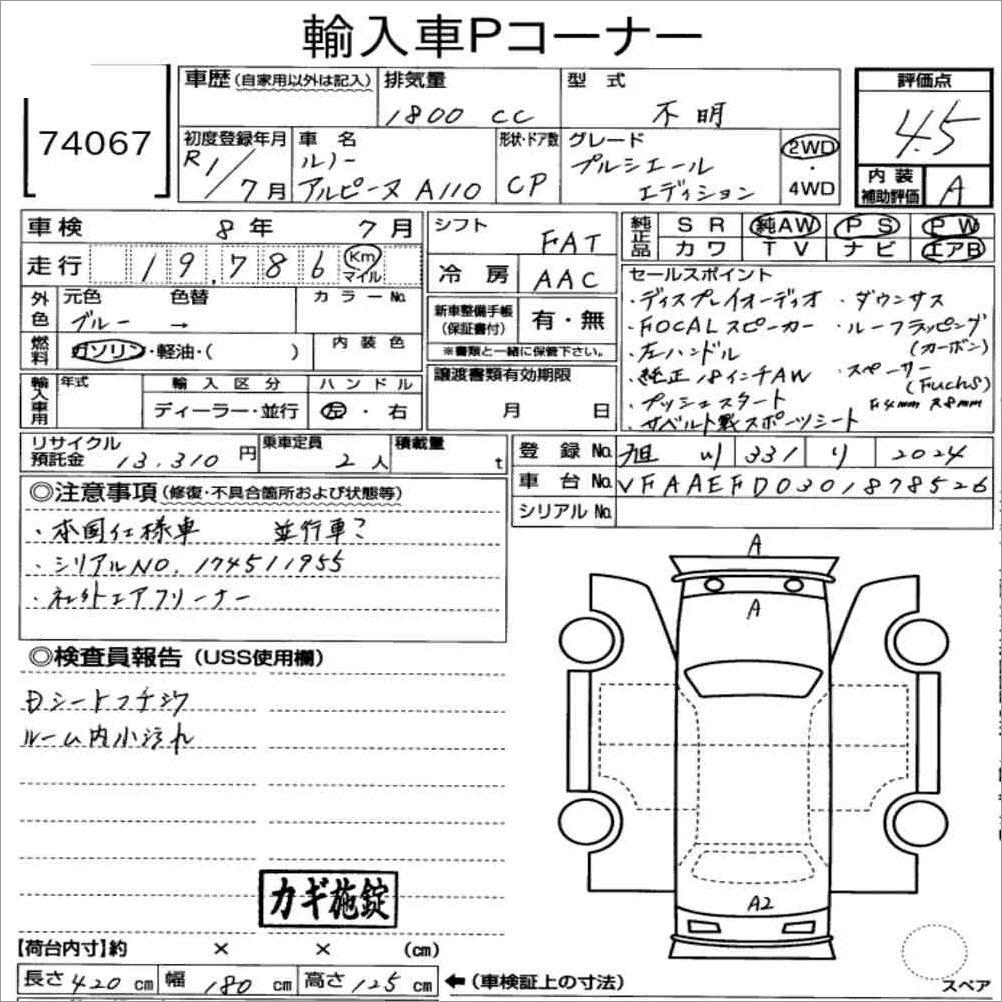 輸入車Pコーナー
74067
車歴 (自家用以外は記入)
排気量 1800 CC
型式 不明
評価点 4.5
初度登録年月 R1/7月
車名 ルノー アルピーヌ A110
形状・ドア数 CP
グレード プルシエール エディション
2WD・4WD
内装補助評価 A
車検 8年 7月
走行 19,786 Km マイル
シフト FAT
冷房 AAC
純正品 SR 純AW PS PW
カワ TV ナビ エアB
外色 元色 ブルー → 色替
カラーNo.
燃料 ガソリン・軽油・( )
内装色
新車整備手帳 (保証書付) 有・無
※書類と一緒に保管下さい。
セールスポイント
・ディスプレイオーディオ ・ダウンサス
・FOCALスピーカー ・ルーフラッピング (カーボン)
・左ハンドル
・純正18インチAW ・スペーサー (Fuchs)
・プッシュスタート F4mm R8mm
・サベルト製スポーツシート
輸入車用 年式
輸入区分 ディーラー・並行
ハンドル 左・右
譲渡書類有効期限 月 日
リサイクル預託金 13,310円
乗車定員 2人
積載量 t
登録No. 旭川 331 り 2024
車台No. VFAAEFD0301878526
シリアルNo.
◎注意事項 (修復・不具合箇所および状態等)
・本国仕様車 並行車?
・シリアルNO. 174511955
・社外エアクリーナー
◎検査員報告 (USS使用欄)
Dシートフチシワ
ルーム内小汚れ
カギ施錠
A
A
A2
スペア
【荷台内寸】約 × × (cm)
長さ 420 cm 幅 180 cm 高さ 125 cm ←(車検証上の寸法)